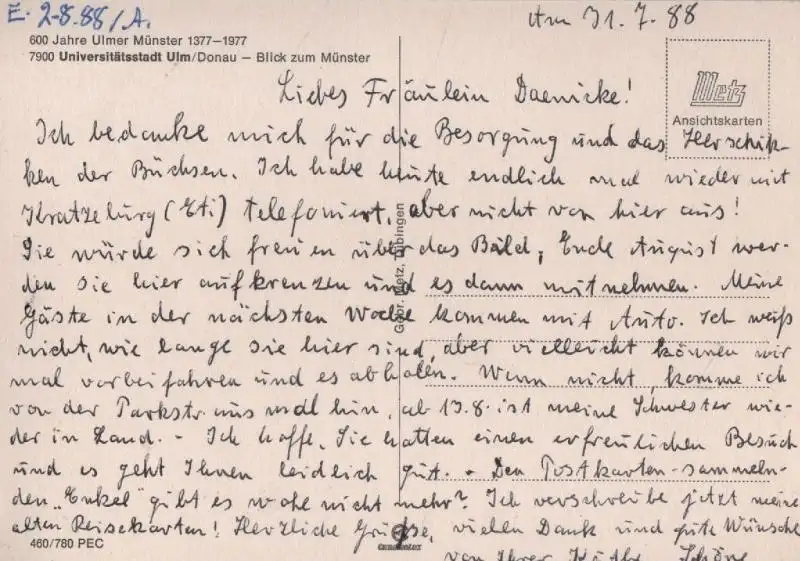 E. 2-8.88/A.
Am 31.7.88
600 Jahre Ulmer Münster 1377–1977
7900 Universitätsstadt Ulm/Donau – Blick zum Münster
Metz
Ansichtskarten
Liebes Fräulein Daenicke!
Ich bedanke mich für die Besorgung und das Herschik-
ken der Büchsen. Ich habe heute endlich mal wieder mit
Kratzeburg (Eti.) telefoniert, aber nicht von hier aus!
Sie würde sich freuen über das Bild, Ende August wer-
den sie hier aufkreuzen und es dann mitnehmen. Meine
Gäste in der nächsten Woche kommen mit Auto. Ich weiß
nicht, wie lange sie hier sind, aber vielleicht können wir
mal vorbeifahren und es abholen. Wenn nicht, komme ich
von der Parkstr. aus mal hin, ab 13.8. ist meine Schwester wie-
der in Land. - Ich hoffe, Sie hatten einen erfreulichen Besuch
und es geht Ihnen leidlich gut. - Den Postkarten-sammeln-
den "Enkel" gibt es wohl nicht mehr? Ich verschreibe jetzt meine
alten Reisekarten! Herzliche Grüße, vielen Dank und gute Wünsche
von Ihrer Käthe Schöne
Gebr. Metz, Tübingen
460/780 PEC